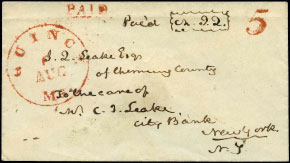 PAID
Paid
Ch. 22
5
QUINCY
AUG
MS
J. Q. Leake Esqr
of Chemung County
To the care of
Mr. C. J. Leake
City Bank
New York
N.Y